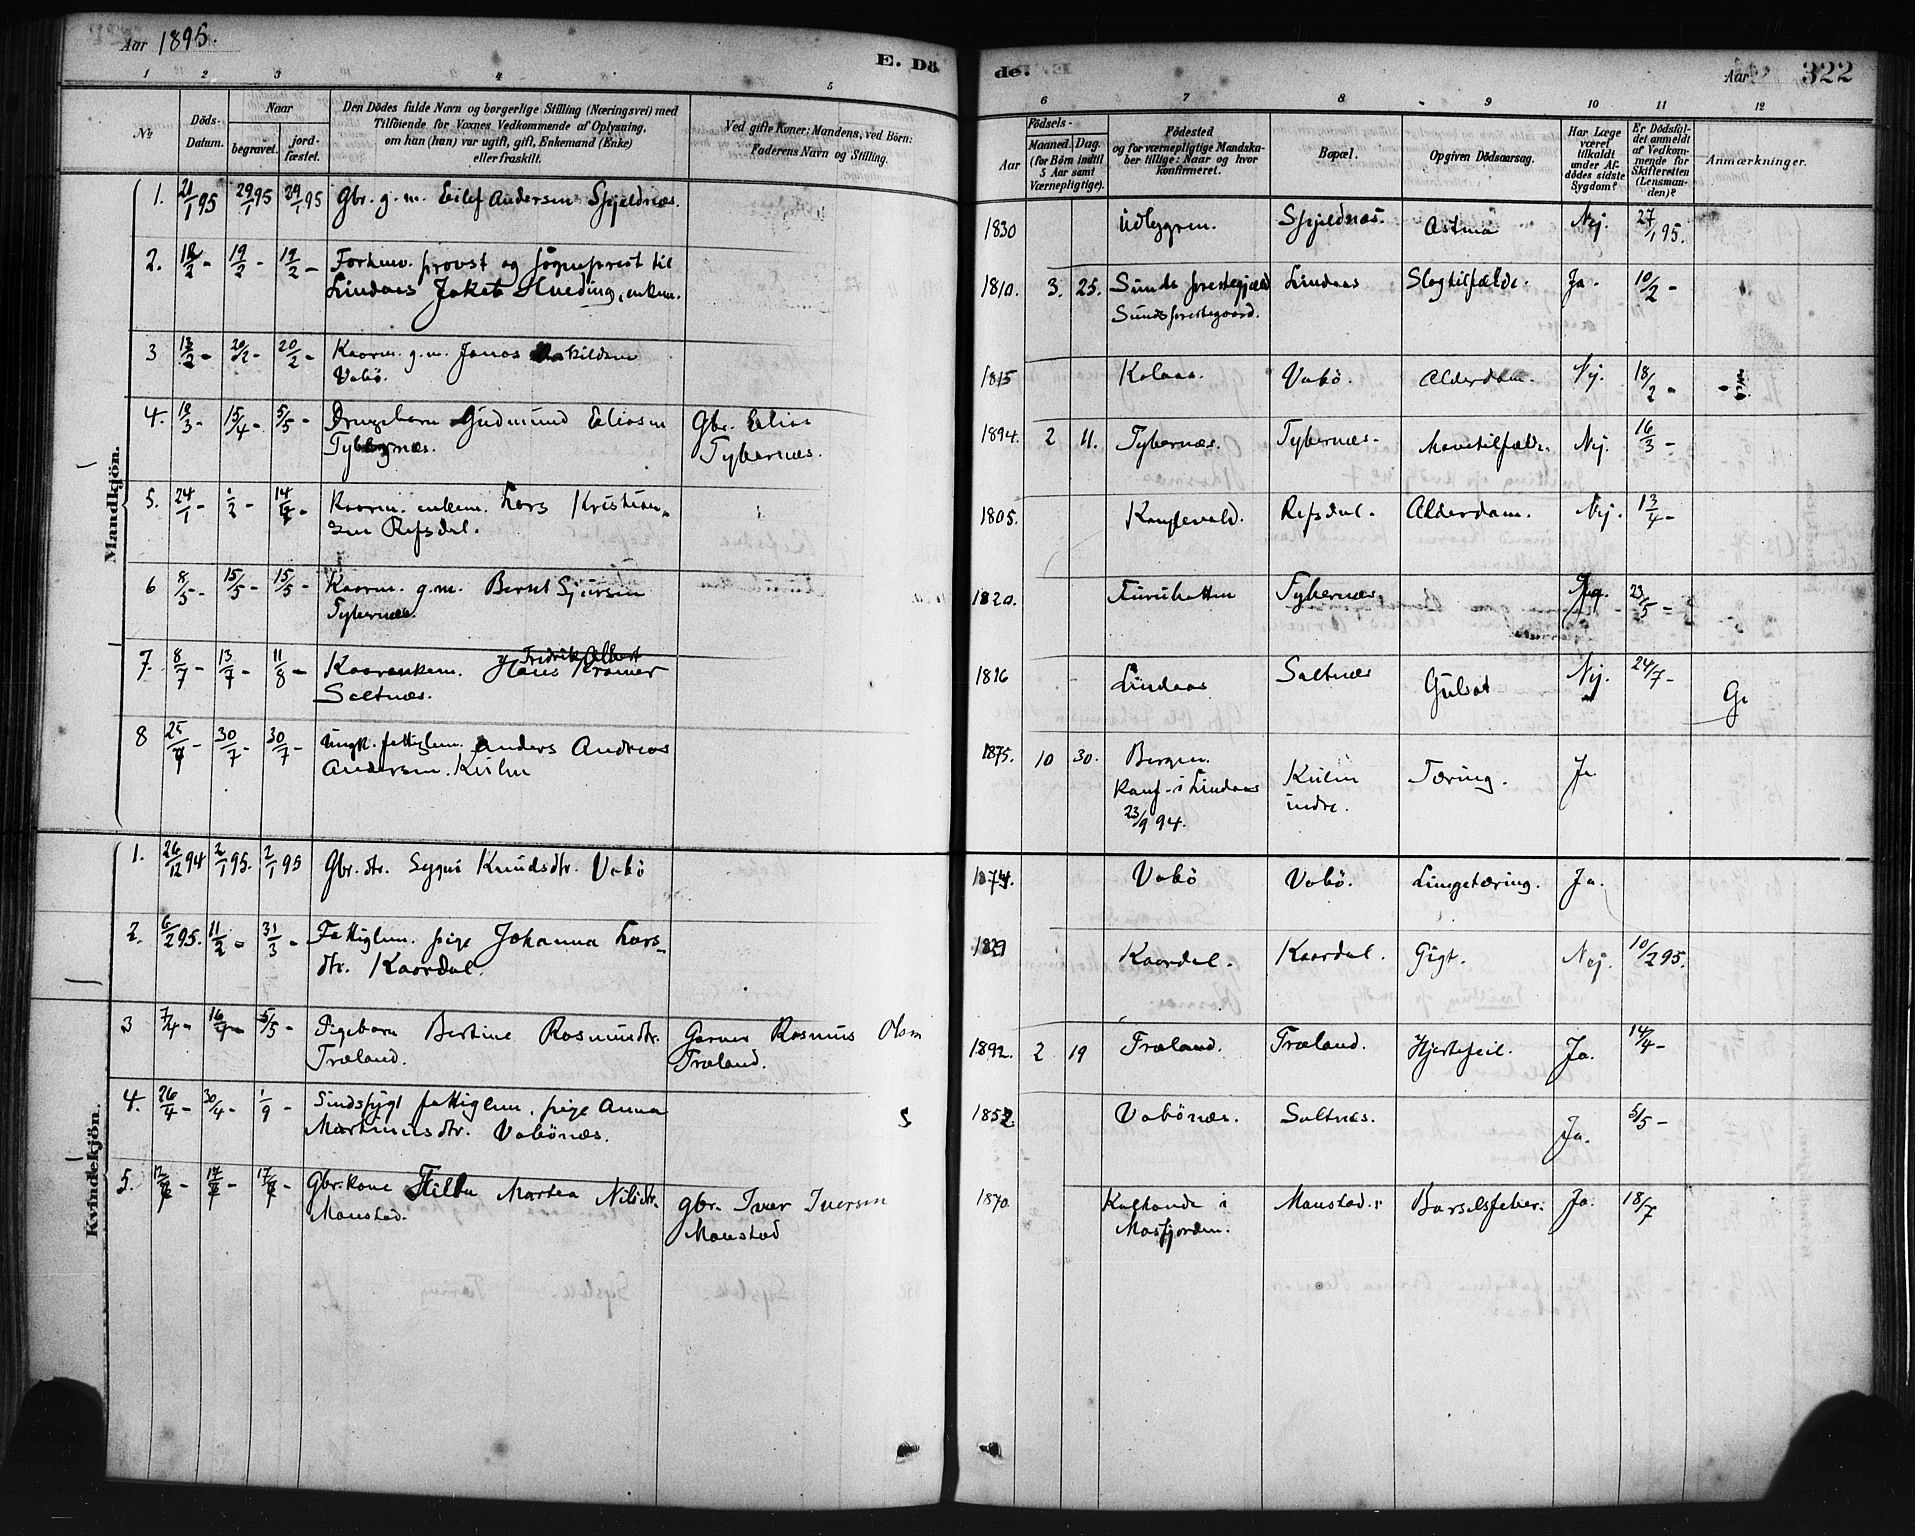 Aar 1895.
E. Döde.
Aar
322
1 2 3 4 5 6 7 8 9 10 11 12
№
Döds-Datum.
Naar
begravet.
jord-fæstet.
Den Dödes fulde Navn og borgerlige Stilling (Næringsvei) med
Tilföiende for Voxnes Vedkommende af Oplysning,
om han (hun) var ugift, gift, Enkemand (Enke)
eller fraskilt.
Ved gifte Koner: Mandens, ved Börn:
Faderens Navn og Stilling.
Födsels-
Aar
Maaned. Dag.
(for Börn indtil
5 Aar samt
Værnepligtige).
Födested
og for værnepligtige Mandska-
ber tillige: Naar og hvor
konfirmeret.
Bopæl.
Opgiven Dödsaarsag.
Har Læge
været
tilkaldt
under Af-
dödes sidste
Sygdom?
Er Dödsfal-
det anmeldt
af Vedkom-
mende for
Skifteretten
(Lensman-
den)?
Anmærkninger.
Mandkjön.
1. 21/1 95 29/1 95 29/1 95 Gbr. g. m. Eilef Andersen Spjeldnæs. 1830 Udlygren. Spjeldnæs. Astma Nej. 27/1 95.
2. 12/2 - 19/2 - 19/2 - Forhenv. provst og sogneprest til
Lindaas Jakob Hveding, enkem. 1810. 3. 25. Sunds prestegjæld Lindaas Slagtilfælde. Ja. 10/2 -
Sunds prestegaard.
3 13/2 - 20/2 - 20/2 - Kaarm. g. m. Jonas Askildsen
Vabö. 1815 Kolaas. Vabö. Alderdom. Nej. 18/2 -
4. 12/3 - 15/4 - 5/5 - Drengebarn Gudmund Eliasen Gbr. Elias
Tybernæs. Tybernæs. 1894. 2 11. Tybernæs. Tybernæs. Mavetilfælde. Nej. 16/3 -
5. 24/1 - 1/2 - 14/4 - Kaarm. enkem. Lars Kristian-
sen Refsdal. 1805. Kanglevold. Refsdal. Alderdom. Nej. 13/4 -
6 8/5 - 15/5 - 15/5 - Kaarm. g. m. Bernt Sjursen
Tybernæs. 1820. Furuhatten Tybernæs. Ja. 23/5 -
7. 8/7 - 13/7 - 11/8 - Kaarenkem. Hans Kramer
Fredrik Albert
Saltnæs. 1816 Lindaas Saltnæs Gulsot Nej. 24/7 -
8 25/7 - 30/7 - 30/7 - Ungk. fattiglem. Anders Andreas
Andersen Keilen 1875. 10 30. Bergen.
Konf. i Lindaas Keilen Tæring. Ja
23/9 94. indre.
Kvindekjön.
1. 26/12 94 2/1 95. 2/1 95 Gbr. dtr. Sygni Knudsdtr. Vabö 1874. Vabö Vabö. Lungetæring. Ja.
2. 6/2 95. 11/2 - 31/3 - Fattiglem. pige Johanna Lars-
dtr. Kaardal. 1829 Kaardal. Kaardal. Gigt. Nej. 10/2 95.
3 7/4 - 16/4 - 5/5 - Pigebarn Bertine Rasmusdtr. Rasmus Olsen
Træland. Træland. 1892. 2 19 Træland. Træland. Hjertefeil. Ja. 14/4 -
4. 26/4 - 30/4 - 1/9 - Sindssygt fattiglem, pige Anna
Martinusdtr. Vabönæs. 1852 Vabönæs. Saltnæs. Ja. 5/5 -
5. 12/7 - 17/7 - 17/7 - Gbr. kone Hilda Martea Nilsdtr. gbr. Ivar Iversen
Monstad. Monstad 1870. i Monstad. Barselsfeber. Ja. 18/7
Masfjorden.